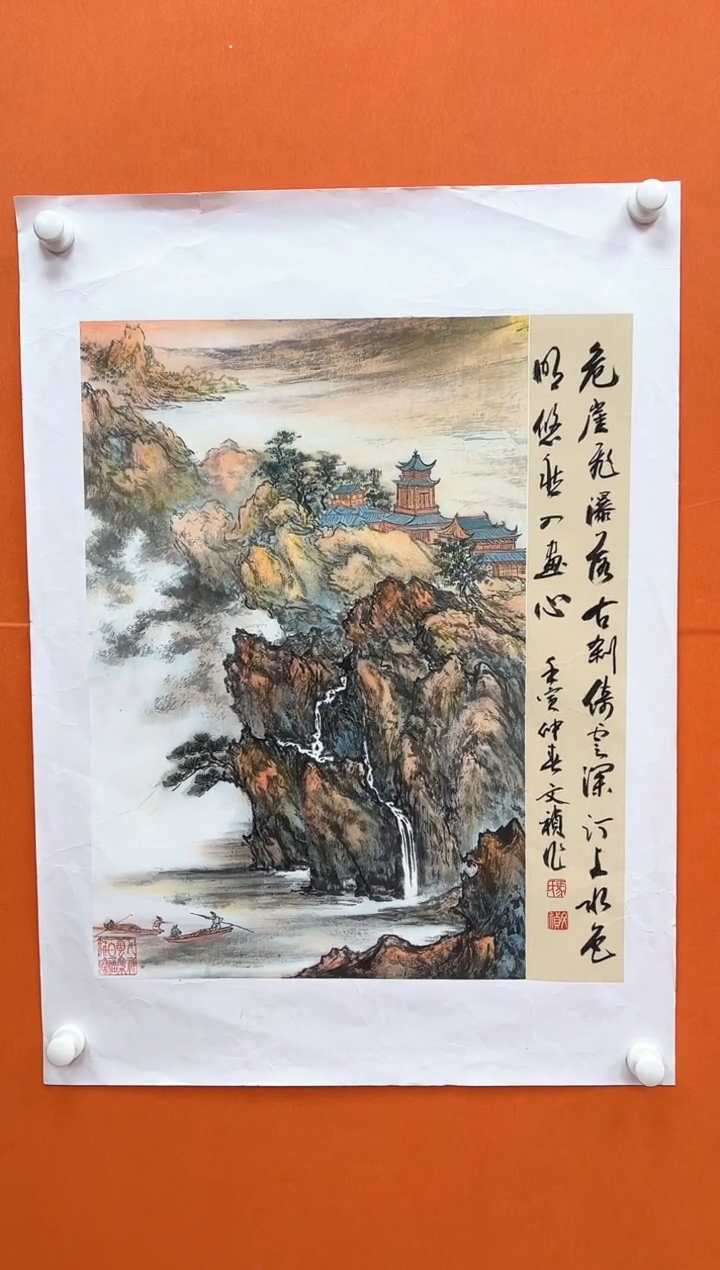 危崖飛瀑落古刹倚雲深河上水色
明悠然入画心
壬寅仲春文禎作